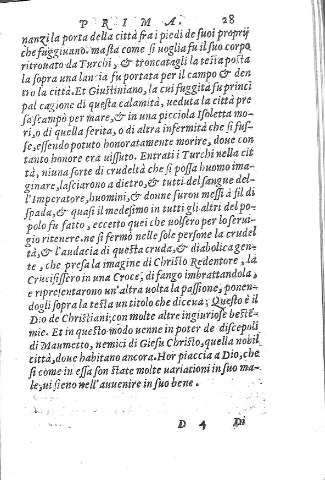 PRIMA. 28
nanzi la porta della città fra i piedi de suoi proprij
che fuggiuano. ma sta come si uoglia fu il suo corpo
ritrouato da Turchi, & troncatagli la testa posta
la sopra una lancia fu portata per il campo & den
tro la città. Et Giustiniano, la cui fuggita fu princi
pal cagione di questa calamità, ueduta la città pre
sa scampò per mare, & in una picciola Isoletta mo
rì, o di quella ferita, o di altra infermità che si fus-
se, essendo potuto honoratamente morire, doue con
tanto honore era uissuto. Entrati i Turchi nella cit
tà, niuna sorte di crudeltà che si possa huomo ima
ginare, lasciarono a dietro, & tutti del sangue del-
l'Imperatore, huomini, & donne furon messi à fil di
spada, & quasi il medesimo in tutti gli altri del po-
polo fu fatto, eccetto quei che uolsero per lo serui-
gio ritenere. ne si fermò nelle sole persone la crudel
tà, & l'audacia di questa cruda, & diabolica gen-
te, che presa la imagine di Christo Redentore, la
Crucifissero in una Croce, di fango imbrattandola,
e ripresentarono un'altra uolta la passione, ponen-
dogli sopra la testa un titolo che diceua; Questo è il
Dio de Christiani; con molte altre ingiuriose bestē-
mie. Et in questo modo uenne in poter de discepoli
di Maumetto, nemici di Giesu Christo, quella nobil
città, doue habitano ancora. Hor piaccia a Dio, che
si come in essa son state molte uariationi in suo ma-
le, ui sieno nell'auuenire in suo bene.
D 4 Di